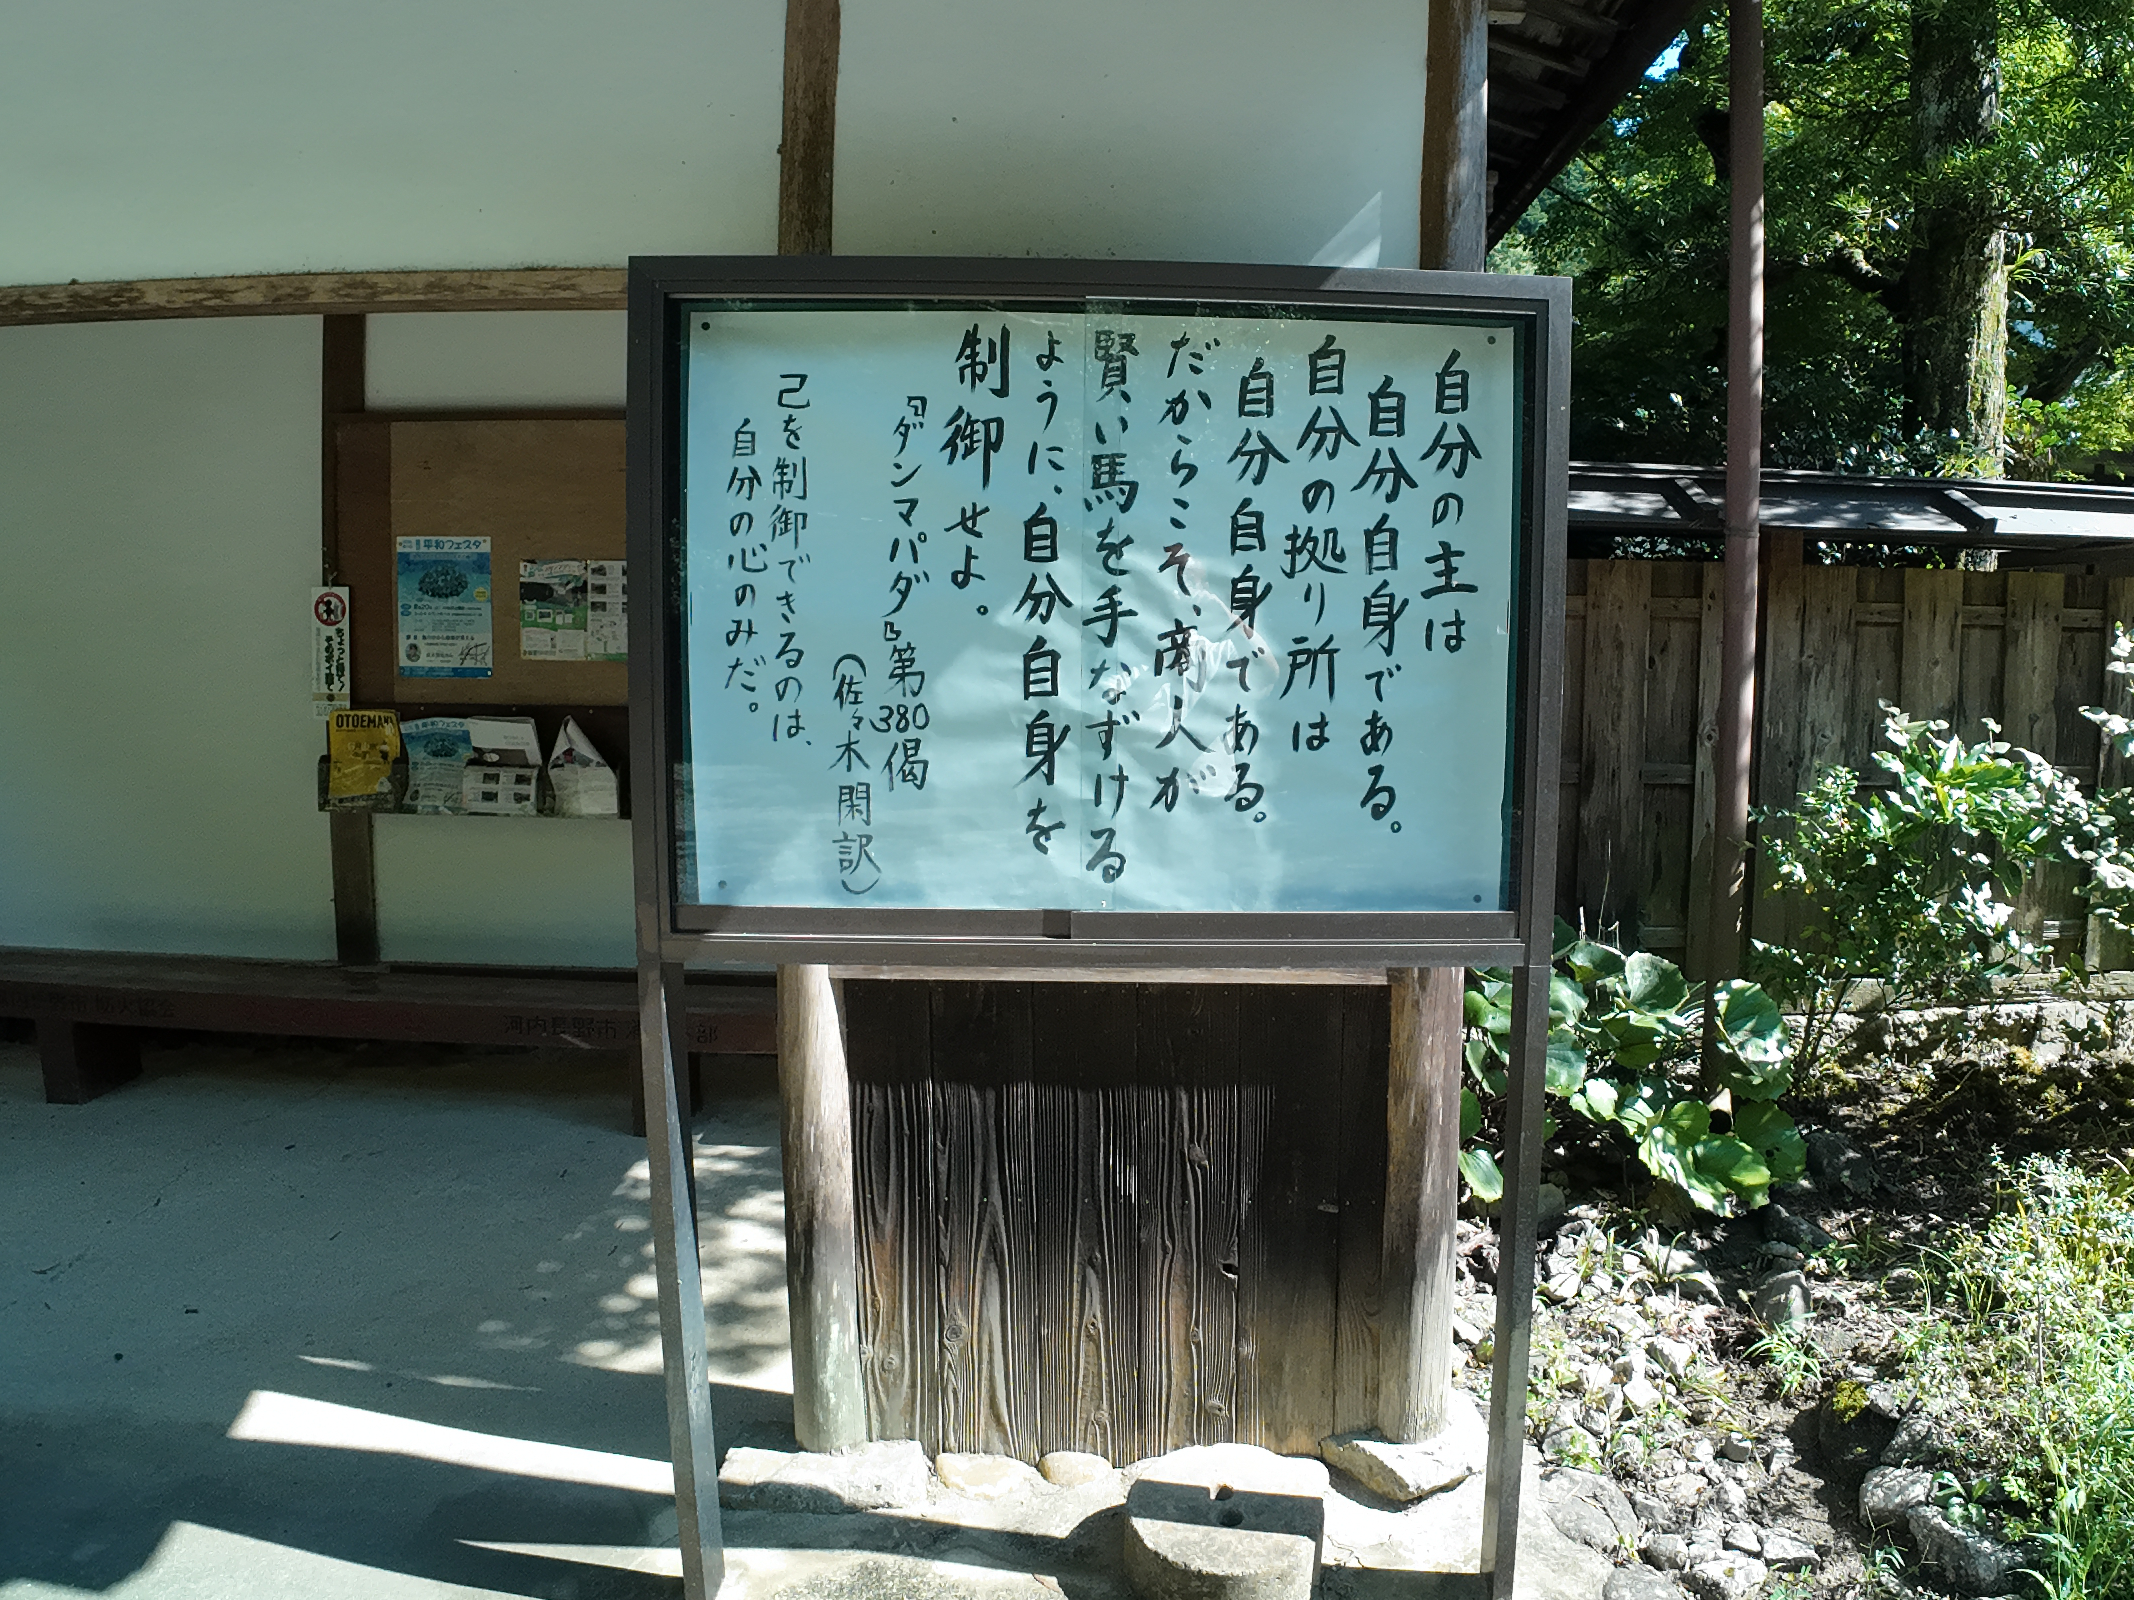 自分の主は
自分自身である。
自分の拠り所は
自分自身である。
だからこそ、商人が
賢い馬を手なずける
ように、自分自身を
制御せよ。
『ダンマパダ』第380偈
(佐々木閑訳)
己を制御できるのは、
自分の心のみだ。
平和フェスタ
ちょっと待て!
そのポイ捨て
OTOEMAKI
平和フェスタ
防火協会
河内長野市